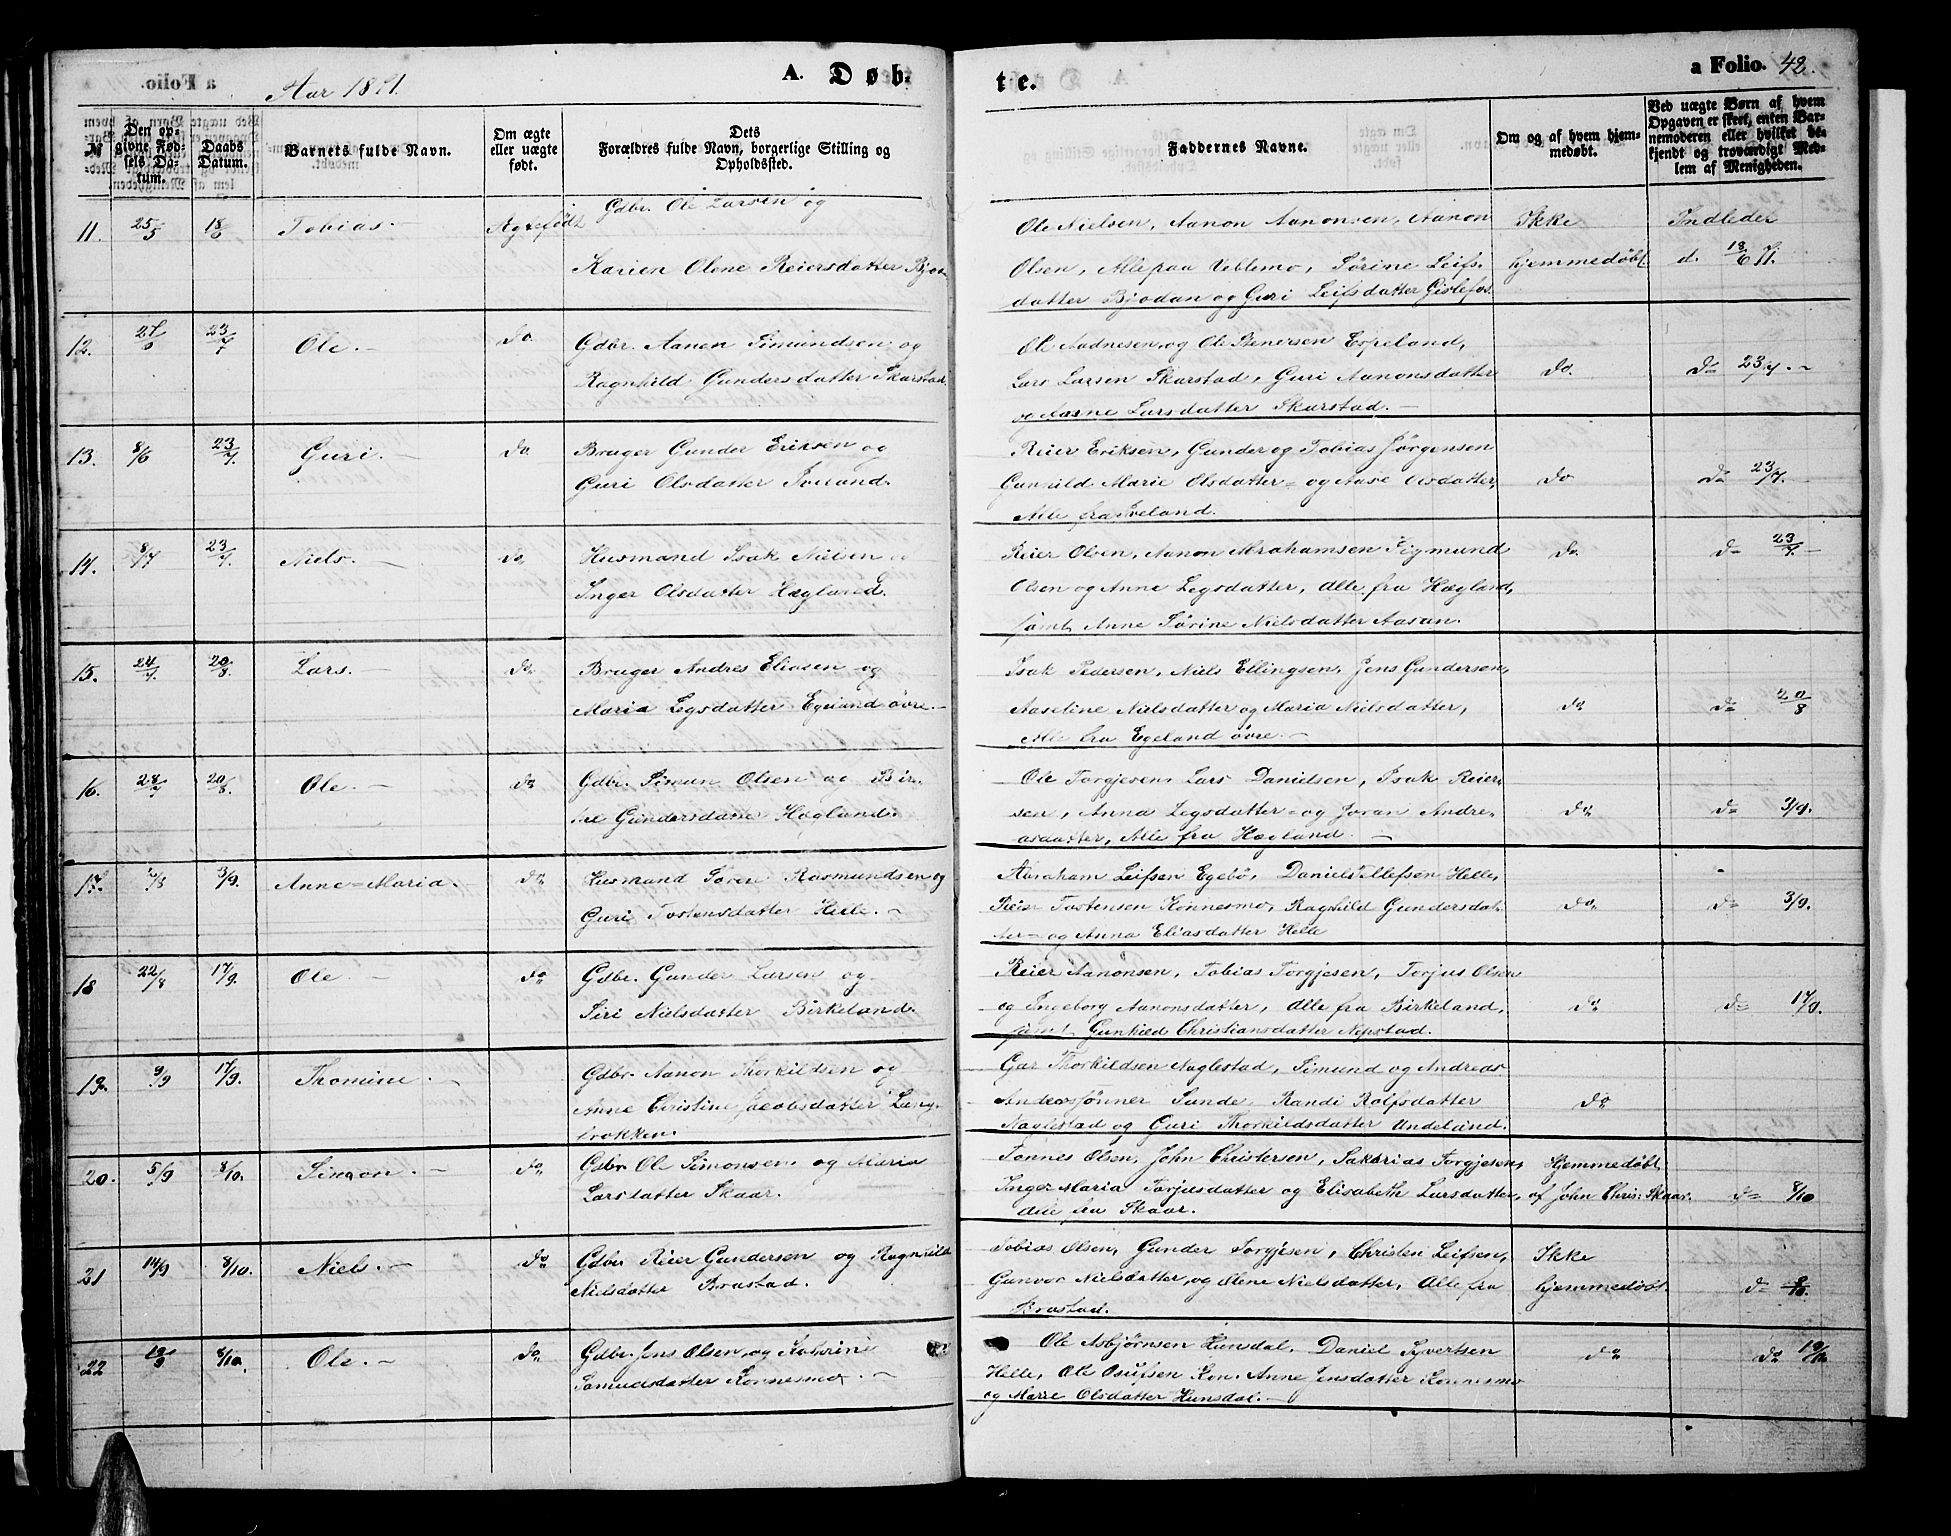 a Folio.
Aar 1871.
A. Døb-
№
Den op-
givne Fød-
sels Da-
tum.
Daabs
Datum.
Barnets fulde Navn.
Om ægte
eller uægte
født.
Dets
Forældres fulde Navn, borgerlige Stilling og
Opholdssted.
11. 25/5 18/6 Tobias.- Ægtefødt Gdbr. Ole Larsen og
Karien Olene Reiersdatter
12. 23/7 Ole.- do Gdbr. Aanen Simundsen og
Ragnhild Gundersdatter Skarstad
13. 8/6 23/7. Guri.- do. Bruger Gunder Eriksen og
Guri Olsdatter
14. 8/7 23/7. Niels.- do Husmand Isak Nielsen
Inger Olsdatter Hægland.
15. 24/7. 20/8. Lars.- do Bruger Andres Eliasen og
Maria Legsdatter Egeland øvre.-
16. 28/7 20/8. Ole.- do Gdbr. Simun Olsen og Bir-
Gundersdatter Hægland.
17. 3/9. Anne=Maria. do Husmand Søren Rasmundsen og
Guri Tostensdatter Helle.-
18 22/8 17/9. Ole - do Gdbr. Gunder Larsen og
Siri Nielsdatter Birkeland.
19. 9/9 17/9. Thomine.- Gdbr. Aanon Thorkildsen og
Anne Christine Jacobsdatter Lang-
brokken.
20. 5/9 8/10. Simon.- do Gdbr Ole Simonsen og Maria
Larsdatter Skaar.
21 14/9 8/10. Niels.- do Gdbr Reier Gundersen og Ragnhild
Nielsdatter Brastad.
22 8/10. Ole.- do Gdbr. Jens Olsen og Kathrine
Samuelsdatter Konnesmo.-
te.
a Folio. 42.
Faddernes Navne.
Om og af hvem hjem-
medøbt.
Ved uægte Børn af hvem
Opgaven er skeet, enten Bar-
nemoderen eller hvilket be-
kjendt og troværdigt Med-
lem af Menigheden.
Ole Nielsen, Aanon Aanonsen, Aanon Ikke Indleder
Olsen, Alle paa Veblemo, Sørine Leifs- hjemmedøbt d. 18/6 71.
datter Bjodan og Guri Leifsdatter Gislefos
Ole Aadnesen og Ole Stenersen Espeland,
Lars Larsen Skarstad, Guri Aanonsdatter do. do 23/7.-
og Aasne Larsdatter Skarstad.-
Reier Eriksen, Gunder og Tobias Jørgensen
Gunhild Marie Olsdatter og Aase Olsdatter, do do 23/7.
Alle fra Sveland.
Reier Olsen, Aanon Abrahamsen Sigmund do. do 23/7.-
Olsen og Anne Legsdatter, Alle fra Hægland,
samt Anne Sørine Nielsdatter Aasan.
Isak Pedersen, Niels Ellingsen, Jens Gundersen,
Aaseline Nielsdatter og Maria Nielsdatter, do do 20/8
Alle fra Egeland øvre.-
Ole Torgjesen Lars Danielsen, Isak Reier-
sen, Anna Legsdatter og Joran Andre- do do 3/9.
asdatter, Alle fra Hægland.-
Abraham Leifsen Egebø, Daniel Tellefsen Helle,
Reier Tostensen Konnesmo, Ragnhild Gundersdat- do do 3/9.
ter og Anna Eliasdatter Helle
Reier Aanonsen, Tobias Torgjesen, Torjus Olsen
og Ingeborg Aanonsdatter, Alle fra Birkeland, do do 17/9.
samt Gunhild Christiansdatter Nepstad.
Thorkildsen Naglestad, Simund og Andreas
Anderssønner Sunde, Randi Rolfsdatter do
Naglestad og Guri Thorkildsdatter Undeland.
Tønnes Olsen, John Christersen, Sakarias Torgjesen, Hjemmedøbt
Inger Maria Torjusdatter og Elisabeth Larsdatter, af John Chris: Skaar. do 8/10
Alle fra Skaar.
Tobias Olsen, Gunder Torgjesen, Christen Leifsen, Ikke
Gunvor Nielsdatter og Olene Nielsdatter, Alle fra hjemmedøbt. do 8/10.
Brastad.
Ole Asbjørnsen Hunsdal. Daniel Syvertsen do do
Helle, Ole Osufsen Kon. Anne Jensdatter Konnesmo
og Marie Olsdatter Hunsdal.-